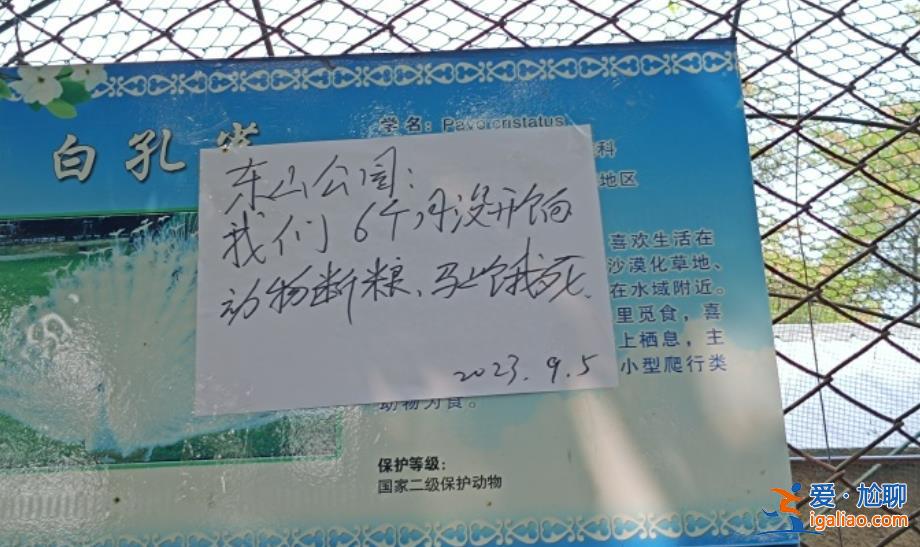 白孔雀
学名：Pavo cristatus
科
地区
东山公园：
我们6个月没开饷
动物断粮、马上饿死、
2023.9.5
喜欢生活在
沙漠化草地、
在水域附近。
里觅食，喜
上栖息，主
小型爬行类
动物为食。
保护等级：
国家二级保护动物
爱·尬聊
igaliao.com